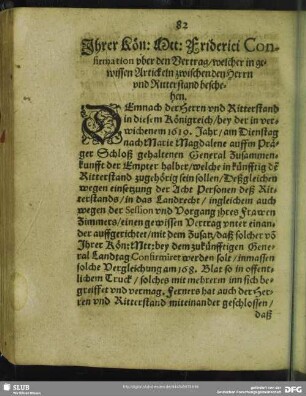 82
Ihrer Kön: Mtt: Friderici Con-
firmation vber den Vertrag/welcher in ge-
wissen Artickeln zwischen den Herrn
vnd Ritterstand besche-
hen.
DEmnach der Herrn vnd Ritterstand
in diesem Königreich/bey der in ver-
wichenem 1619. Jahr/am Dienstag
nach Marie Magdalene auffm Pra-
ger Schloß gehaltenen General Zusammen-
kunfft der Empter halber/welche in künfftig dē
Ritterstand zugehörig sein sollen/Deßgleichen
wegen einsetzung der Acht Personen deß Rit-
terstands/in das Landrecht/ingleichein auch
wegen der Session vnd Vorgang ihres Frawen
Zimmers/einen gewissen Vertrag vnter einan-
der auffgerichtet/mit dem Zusatz/daß solcher vō
Ihrer Kön: Mtt: bey dem zukünfftigen Gene-
ral Landtag Confirmieret werden solt/inmassen
solche Vergleichung am 168. Blat so in offent-
lichem Truck/solches mit mehrerm inn sich be-
greiffet vnd vermag. Ferners hat auch der Her-
ren vnd Ritterstand miteinander geschlossen/
daß
SLUB
DFG